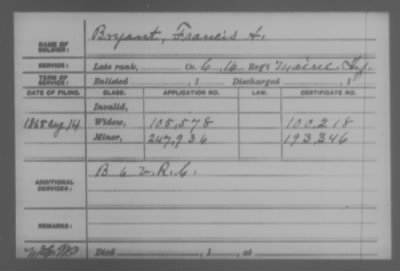 NAME OF SOLDIER: Bryant, Francis A.
SERVICE: Late rank, Co. C, 16 Reg't Maine Inf.
TERM OF SERVICE: Enlisted , 1 Discharged , 1
DATE OF FILING. CLASS. APPLICATION NO. LAW. CERTIFICATE NO.
Invalid,
1865 Aug 14 Widow, 105,578 100,218
Minor, 247,936 193,346
ADDITIONAL SERVICES: B 6 V.R.C.
REMARKS:
Died , 1 , at